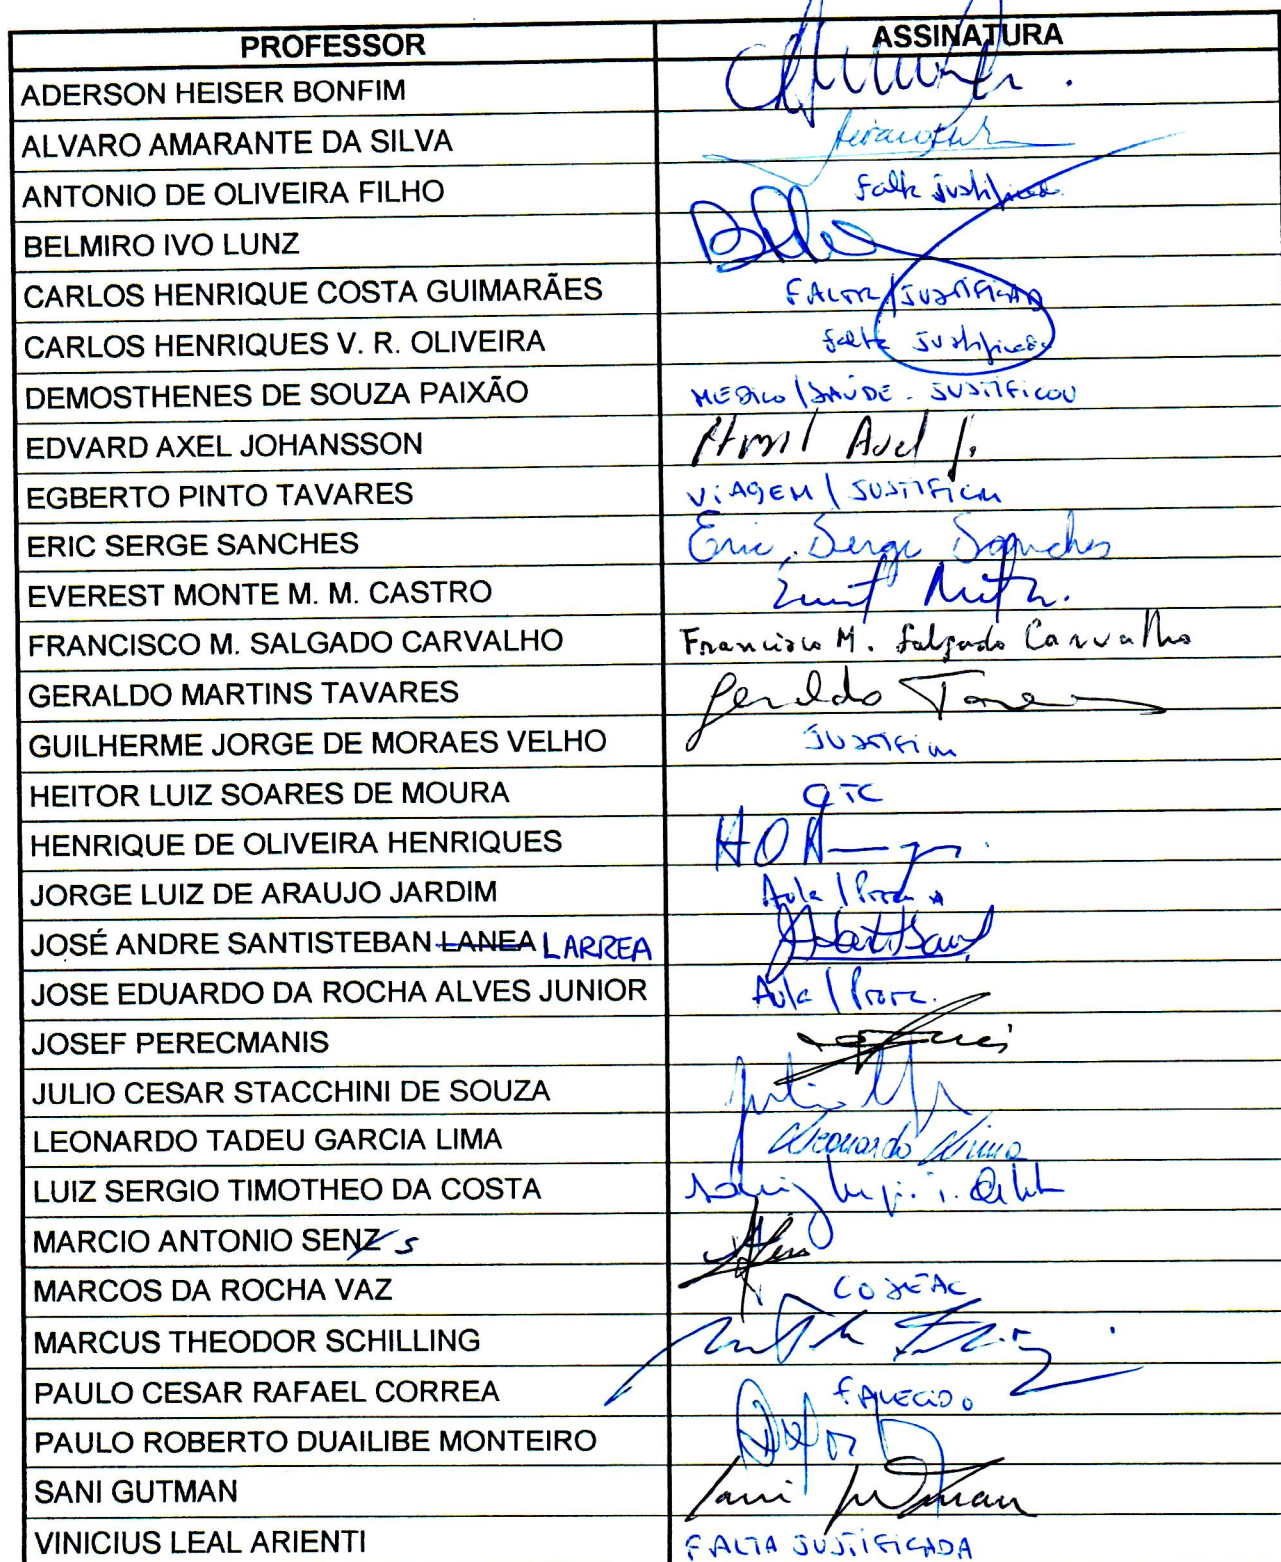 PROFESSOR ASSINATURA
ADERSON HEISER BONFIM
ALVARO AMARANTE DA SILVA
ANTONIO DE OLIVEIRA FILHO falta justificada
BELMIRO IVO LUNZ
CARLOS HENRIQUE COSTA GUIMARÃES FALTA/JUSTIFICADA
CARLOS HENRIQUES V. R. OLIVEIRA falta justificada
DEMOSTHENES DE SOUZA PAIXÃO MÉDICO/SAÚDE - JUSTIFICOU
EDVARD AXEL JOHANSSON Axel J.
EGBERTO PINTO TAVARES VIAGEM /
ERIC SERGE SANCHES Eric Serge Sanches
EVEREST MONTE M. M. CASTRO
FRANCISCO M. SALGADO CARVALHO Francisco M. Salgado Carvalho
GERALDO MARTINS TAVARES Geraldo Tavares
GUILHERME JORGE DE MORAES VELHO
HEITOR LUIZ SOARES DE MOURA
HENRIQUE DE OLIVEIRA HENRIQUES
JORGE LUIZ DE ARAUJO JARDIM Aula / Prova
JOSÉ ANDRE SANTISTEBAN LANEA LARREA
JOSE EDUARDO DA ROCHA ALVES JUNIOR Aula / Prova
JOSEF PERECMANIS
JULIO CESAR STACCHINI DE SOUZA
LEONARDO TADEU GARCIA LIMA Leonardo Lima
LUIZ SERGIO TIMOTHEO DA COSTA
MARCIO ANTONIO SENZ S
MARCOS DA ROCHA VAZ COSEAC
MARCUS THEODOR SCHILLING
PAULO CESAR RAFAEL CORREA FALECIDO
PAULO ROBERTO DUAILIBE MONTEIRO
SANI GUTMAN Sani Gutman
VINICIUS LEAL ARIENTI FALTA JUSTIFICADA